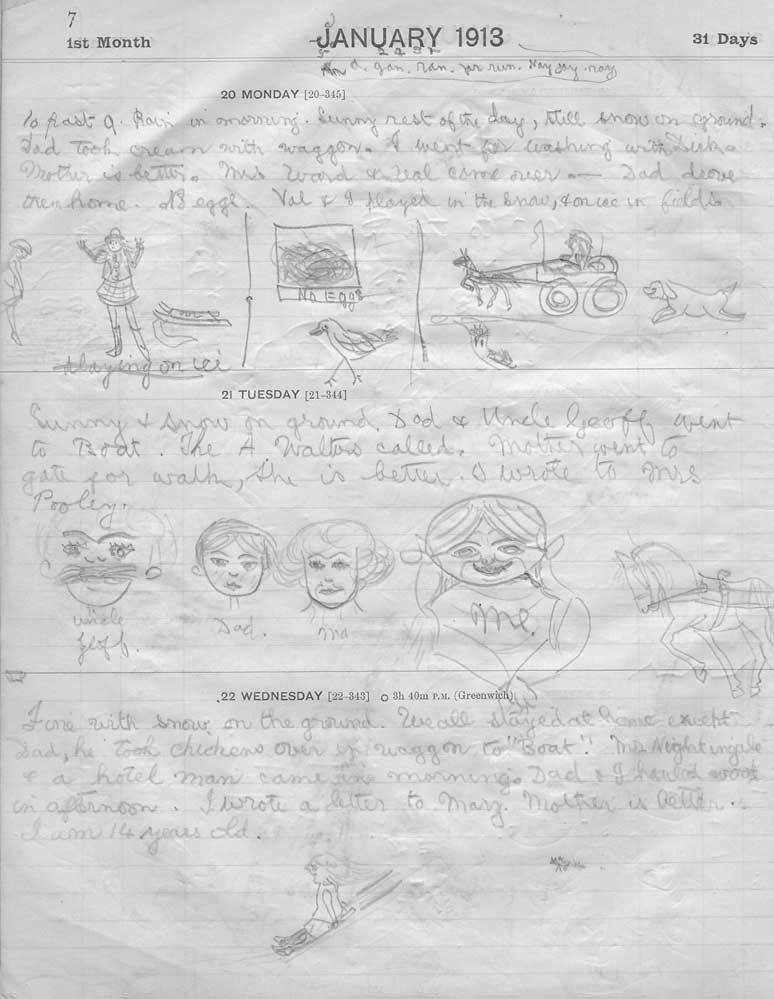 7
1st Month
JANUARY 1913
31 Days
gan. ran. run. Nay say. nay
20 MONDAY [20-345]
to past 9. Rain in morning. Sunny rest of the day, still snow on ground.
Dad took cream with waggon. I went for washing with Dick.
Mother is better. Mrs Ward & Val came over — Dad drove
them home. 18 eggs. Val & I played in the snow, & on ice in fields
No Eggs
playing on ice
21 TUESDAY [21-344]
Sunny & snow on ground. Dad & Uncle Geoff went
to Boat. The A. Walters called. Mother went to
gate for walk, She is better. I wrote to Mrs
Pooley.
Uncle
Geoff.
Dad.
Ma
Me.
22 WEDNESDAY [22-343] 3h 40m P.M. (Greenwich)
Fine with snow on the ground. We all stayed at home except
Dad, he took chickens over in waggon to "Boat". Mrs Nightingale
& a hotel man came in morning. Dad & I hauled wood
in afternoon. I wrote a letter to Mary. Mother is better.
I am 14 years old.